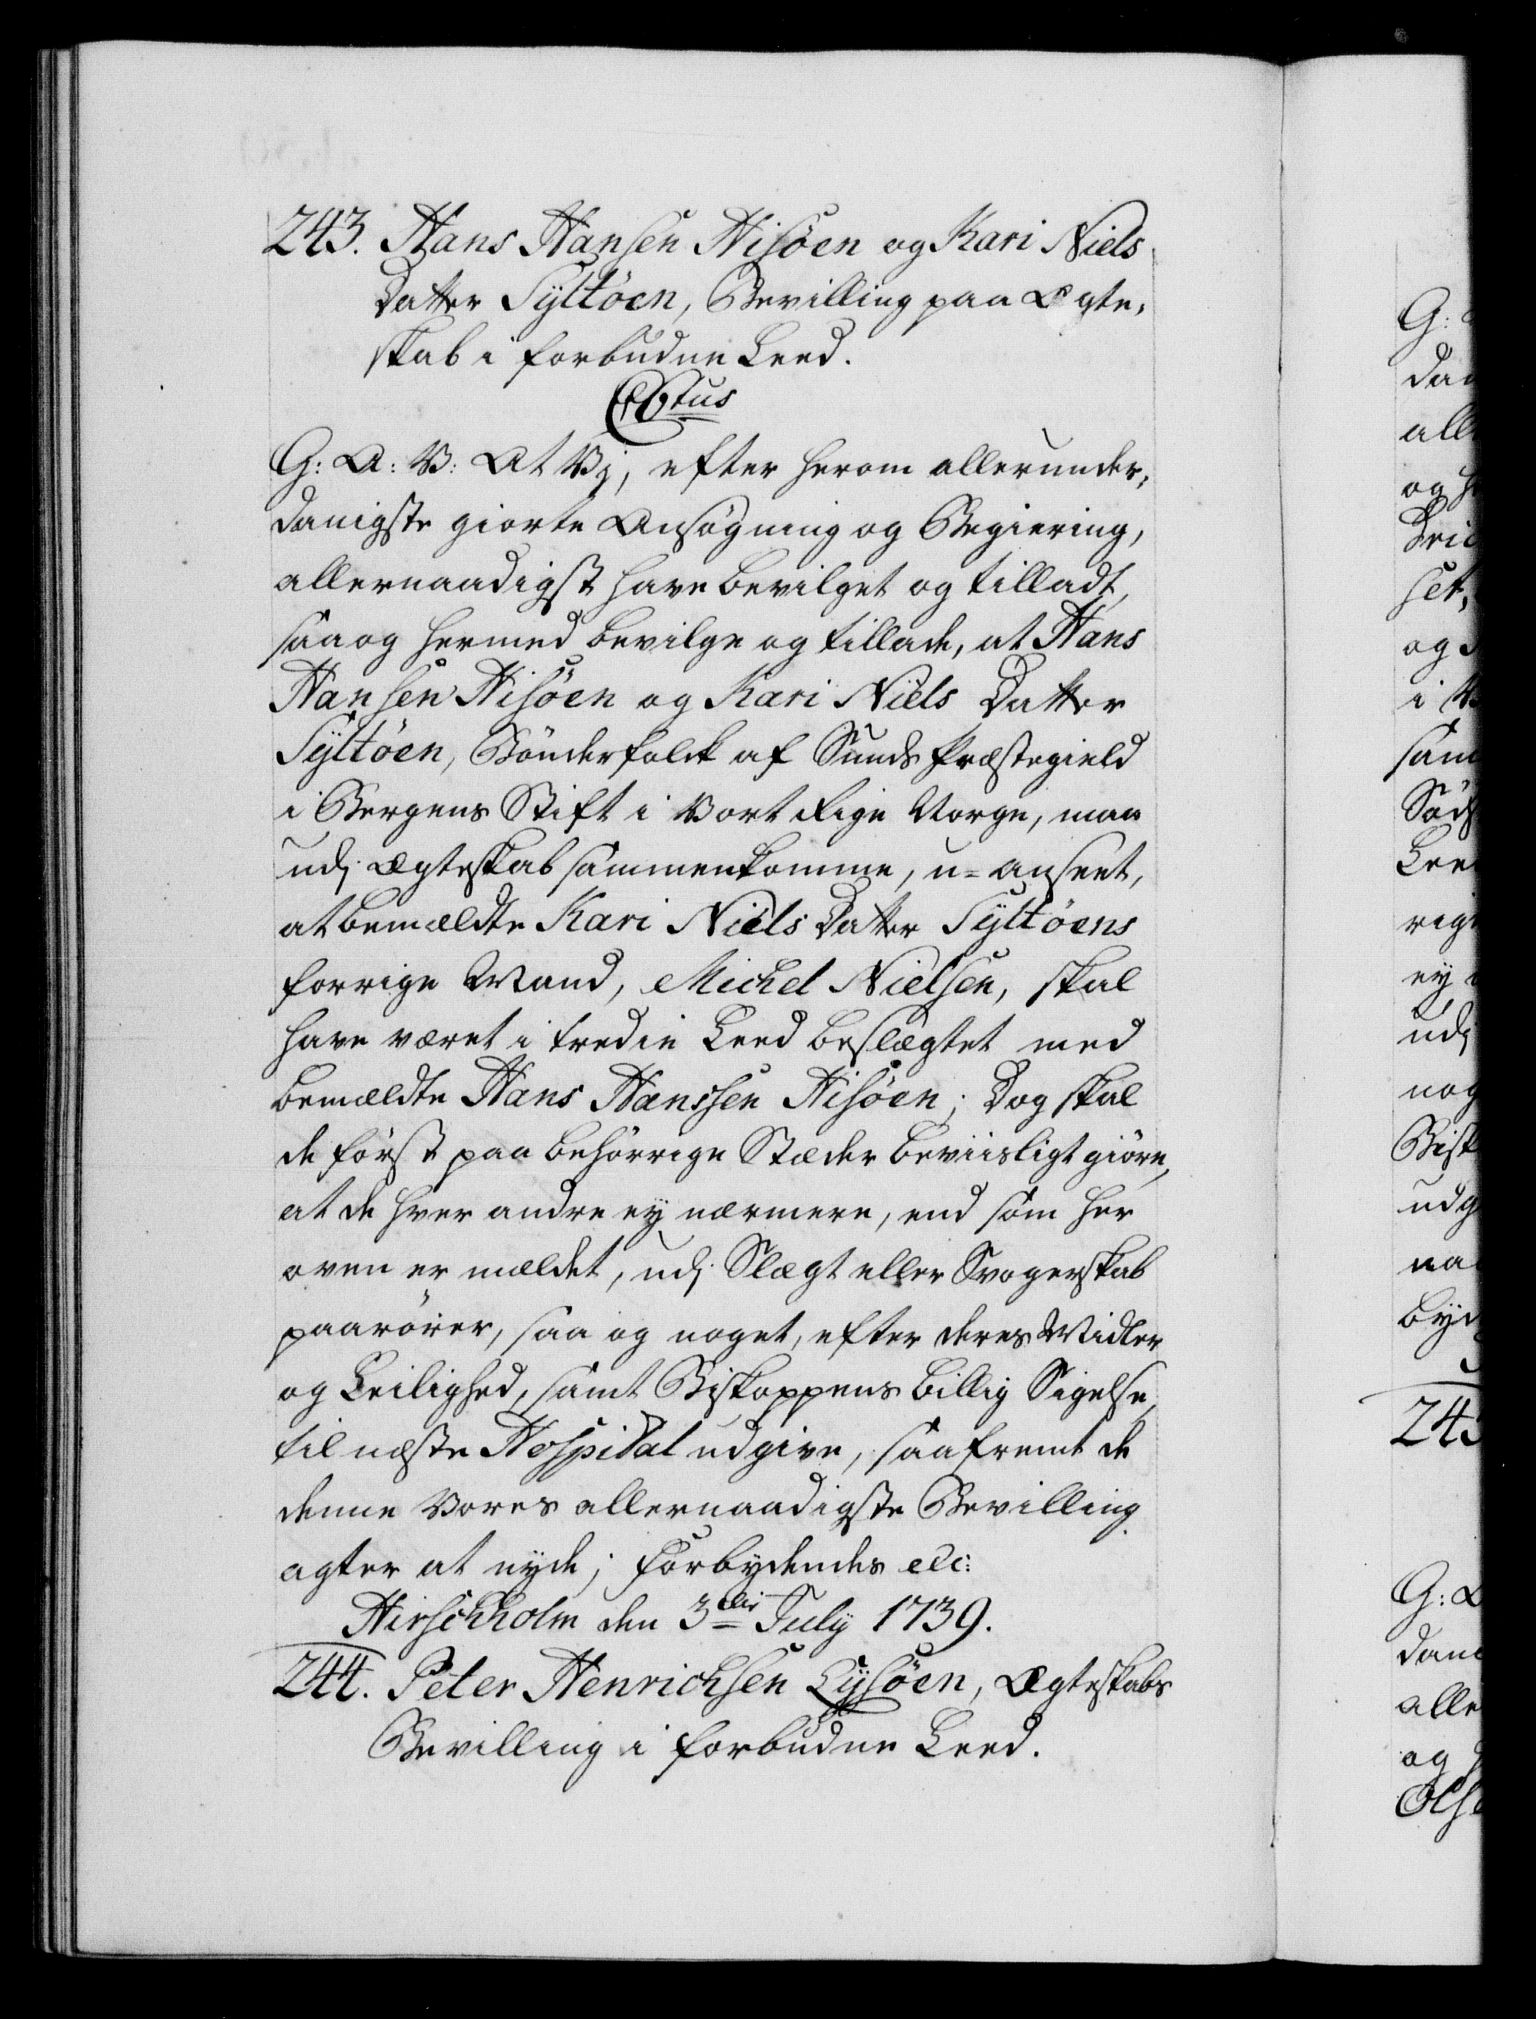 243. Hans Hansen Hisöen og Kari Niels
Datter Syltöen, Bevilling paa Ægte-
skab i forbudne Leed.
C6tus
G: A: V: At Vj, efter herom allerunder-
danigste giorte Ansøgning og Begiering,
allernaadigst have bevilget og tilladt,
saa og hermed bevilge og tillade, at Hans
Hansen Hisöen og Kari Niels Datter
Syltöen, Bönderfolck af Sunds Præstegield
i Bergens Stift i Vort Rige Norge, maa
udj Ægteskab sammenkomme, u-anseet,
at bemældte Kari Niels Datter Syltöens
forrige Mand, Michel Nielsen, skal
have været i tredie Leed beslægtet med
bemældte Hans Hanssen Hisöen; Dog skal
de først paa behörrige Stæder beviisligt giöre,
at de hver andre ey nærmere, end som her
oven er mældet, udj Slægt eller Svogerskab
paarörer, saa og noget, efter deres Midler
og Leilighed, samt Biskoppens billig Sigelse,
til næste Hospital udgive, saafremt de
denne Vores allernaadigste Bevilling
agter at nyde; Forbydendes etc:
Hirschholm den 3die July 1739.
244. Peter Henrichsen Lysöen, Ægteskabs
Bevilling i forbudne Leed.